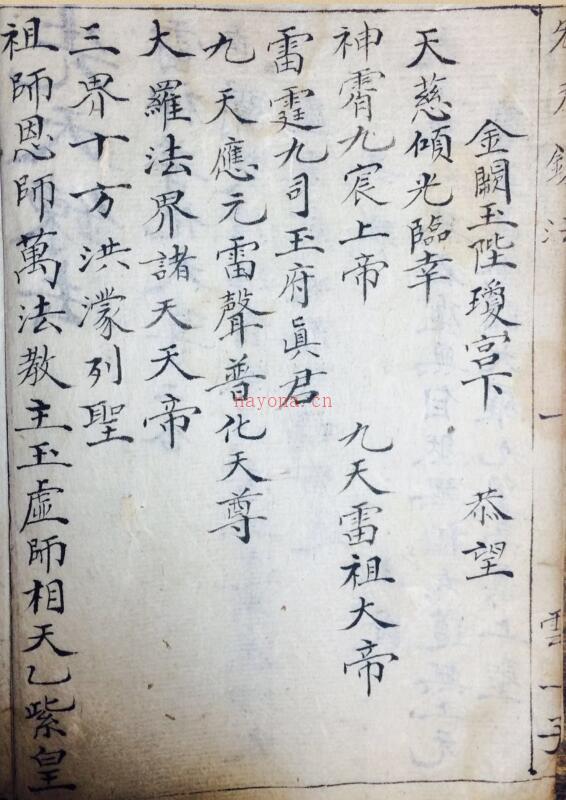 金闕玉陛瓊宮下 恭望
天慈傾光臨幸
神霄九宸上帝 九天雷祖大帝
雷霆九司玉府眞君
九天應元雷聲普化天尊
大羅法界諸天天帝
三界十方洪濛列聖
祖師恩師萬法教主玉虛師相天乙紫皇
一
雲一子
nayona.cn